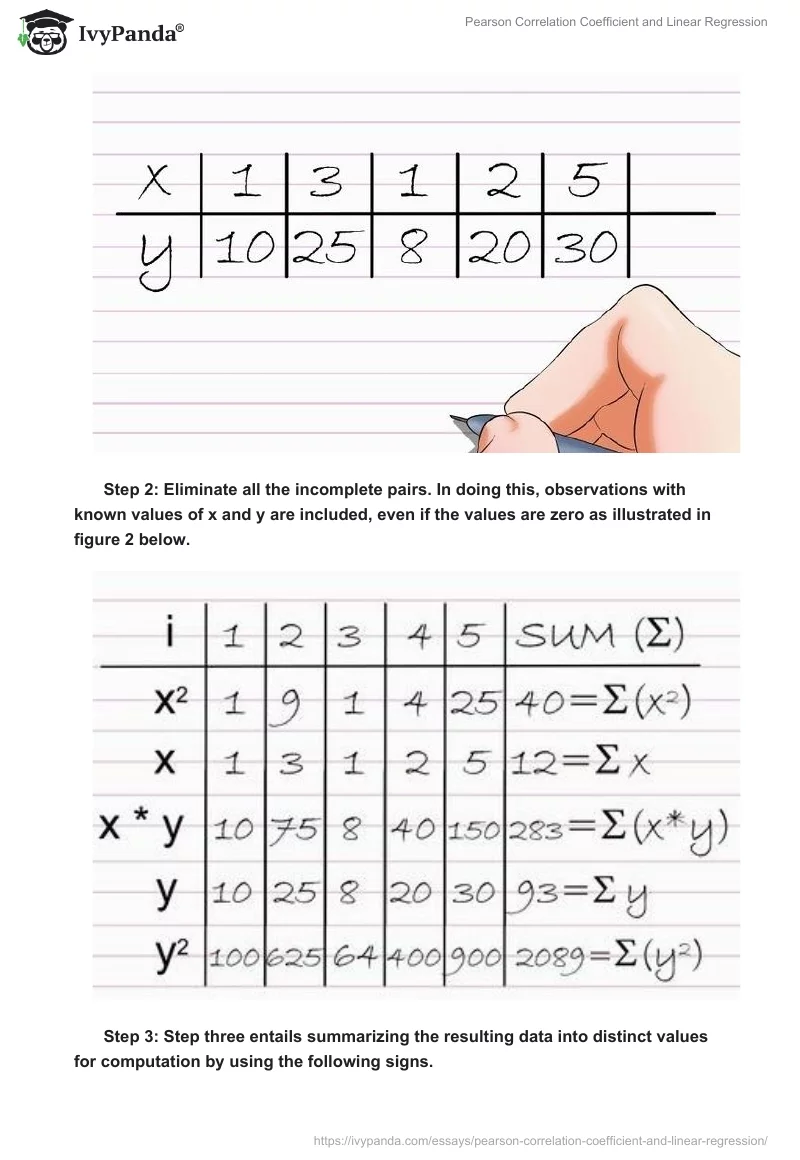 IvyPanda®
Pearson Correlation Coefficient and Linear Regression
x 1 3 1 2 5
y 10 25 8 20 30
Step 2: Eliminate all the incomplete pairs. In doing this, observations with
known values of x and y are included, even if the values are zero as illustrated in
figure 2 below.
i 1 2 3 4 5 SUM (Σ)
x² 1 9 1 4 25 40=Σ(x²)
x 1 3 1 2 5 12=Σx
x * y 10 75 8 40 150 283=Σ(x*y)
y 10 25 8 20 30 93=Σy
y² 100 625 64 400 900 2089=Σ(y²)
Step 3: Step three entails summarizing the resulting data into distinct values
for computation by using the following signs.
https://ivypanda.com/essays/pearson-correlation-coefficient-and-linear-regression/